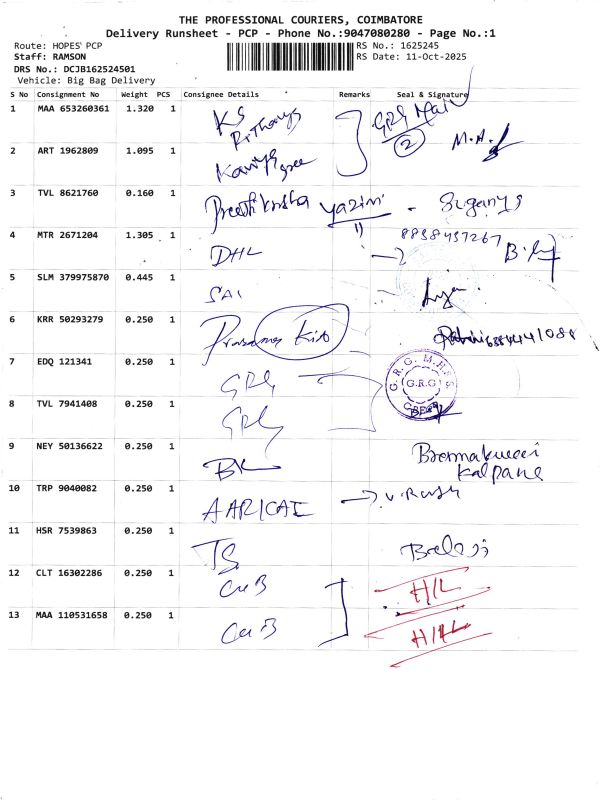 THE PROFESSIONAL COURIERS, COIMBATORE
Delivery Runsheet - PCP - Phone No.:9047080280 - Page No.:1
Route: HOPES PCP
RS No.: 1625245
Staff: RAMSON
RS Date: 11-Oct-2025
DRS No.: DCJB162524501
Vehicle: Big Bag Delivery
S No Consignment No Weight PCS Consignee Details Remarks Seal & Signature
1 MAA 653260361 1.320 1 KS
2 ART 1962809 1.095 1
(2) M.A.
3 TVL 8621760 0.160 1 Preethi Yazini - Suganya
4 MTR 2671204 1.305 1 DHL 8838457267
5 SLM 379975870 0.445 1 SAI
6 KRR 50293279 0.250 1
7 EDQ 121341 0.250 1 GRG
G.R.G. M.H.S.S
G.R.G
8 TVL 7941408 0.250 1 GRG
9 NEY 50136622 0.250 1 Kalpana
10 TRP 9040082 0.250 1
11 HSR 7539863 0.250 1 TS Balaji
12 CLT 16302286 0.250 1 CUB H/L
13 MAA 110531658 0.250 1 CUB H/L